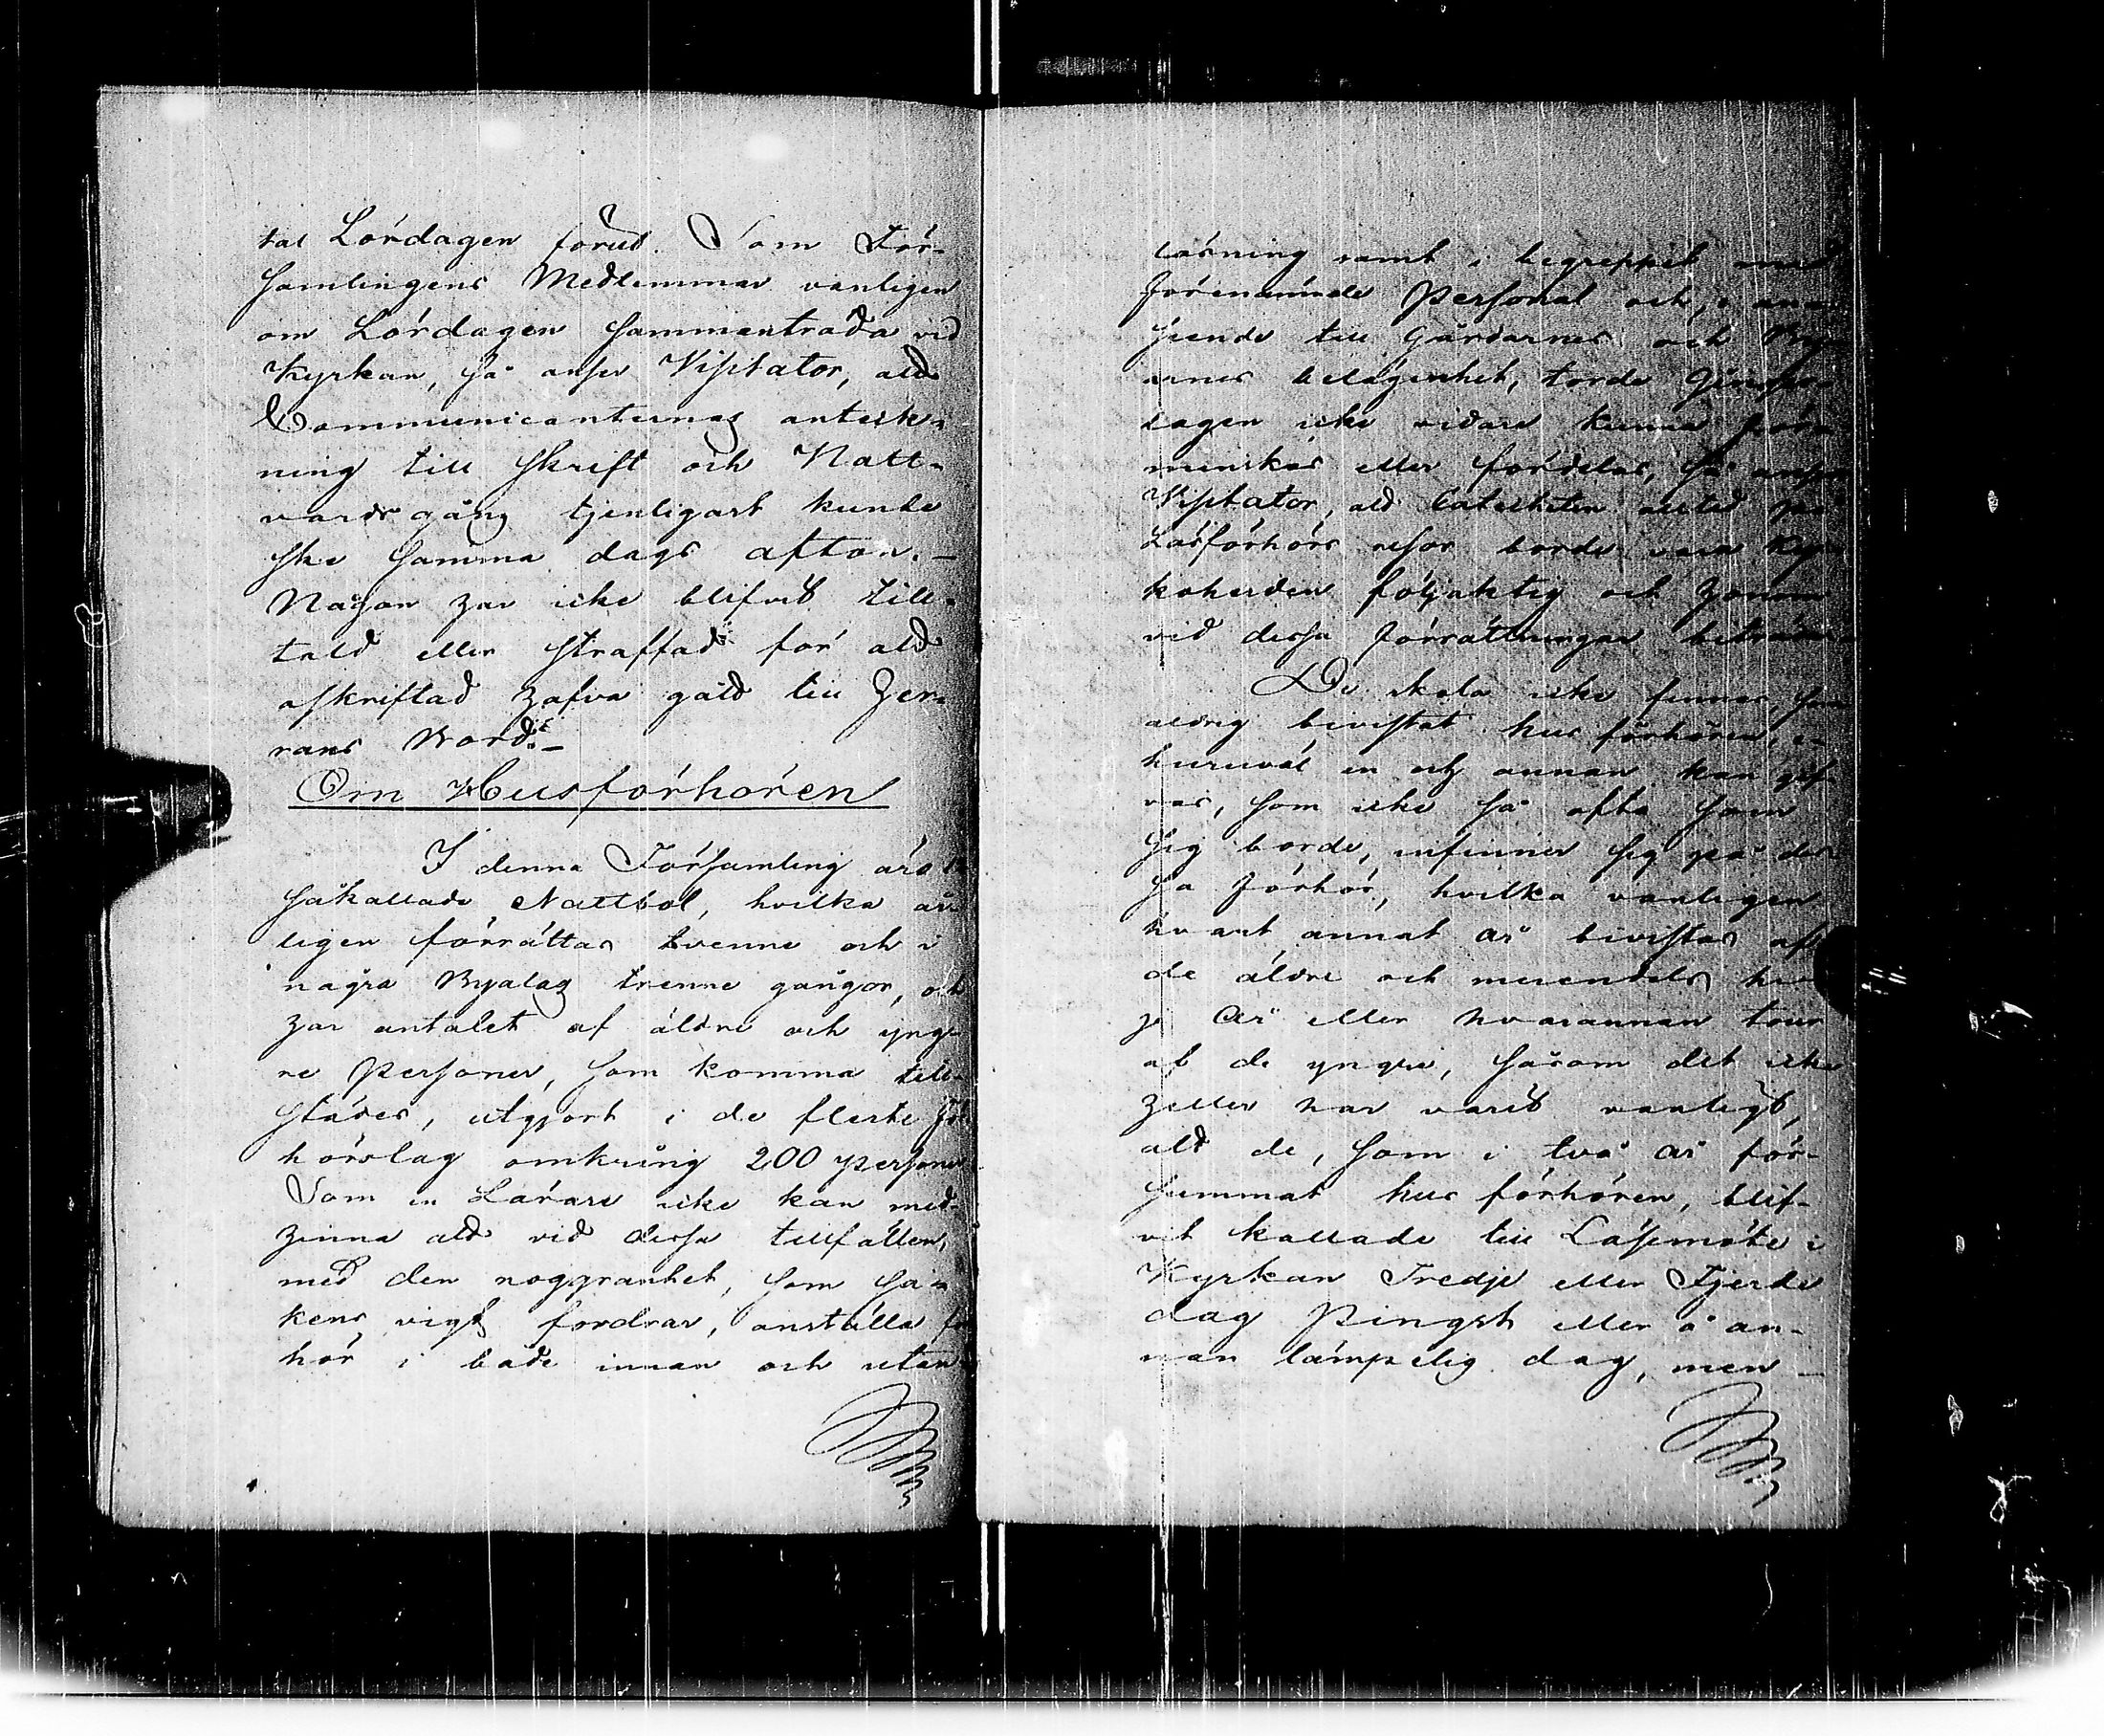 tas Lördagen förut. Som För-
samlingens Medlemmar vanligen
om Lördagen sammanträda vid
Kyrkan, så anser Visitator, att
Communicanternas anteck-
ning till skrift och Natt-
vardsgång tjenligast kunde
ske samma dags afton. –
Någon har icke blifvit till-
tald eller straffad för att
oskriftad hafva gått till Her-
rans Bord. –
Om Husförhören
I denna Församling äro
såkallade Nattbol, hvilka år-
ligen förrättas tvenne och i
några Byalag trenne gångor, och
har antalet af äldre och yng-
re Personer, som komma till-
städes, utgjort i de fleste För
hörslag omkring 200 personer
Som en Lärare icke kan med-
hinna att vid dessa tillfällen,
med den noggranhet, som sa-
kens vigt fordrar, anställa för
hör i både innan och utan
läsning samt i begreppet med
förenämnde Personal och, i an
seende till Gårdarnes och By
arnes belägenhet, torde
lagen icke vidare kunna för
minskas eller fördelas, så anser
Visitator, att Catecheten alltid på
Läsförhörs resor borde vara Kyr
koherden följaktig och honom
vid dessa förrättningar biträda
De skola icke finnas, som
aldrig bevistat husförhören, e-
huruväl en och annan kan gif
vas, som icke så ofta som
sig borde, infinner sig på des
sa förhör, hvilka vanligen
hvart annat år bevistas af
de äldre och merendels hvar
je år eller hvarannan tour
af de yngre, såsom det icke
heller har varit vanligt,
att de, som i två år för-
summat husförhören, blif-
vit kallade till Läsemöte i
Kyrkan Tredje eller Fjerde
dag Pingst eller å an-
nan lämpelig dag, men –